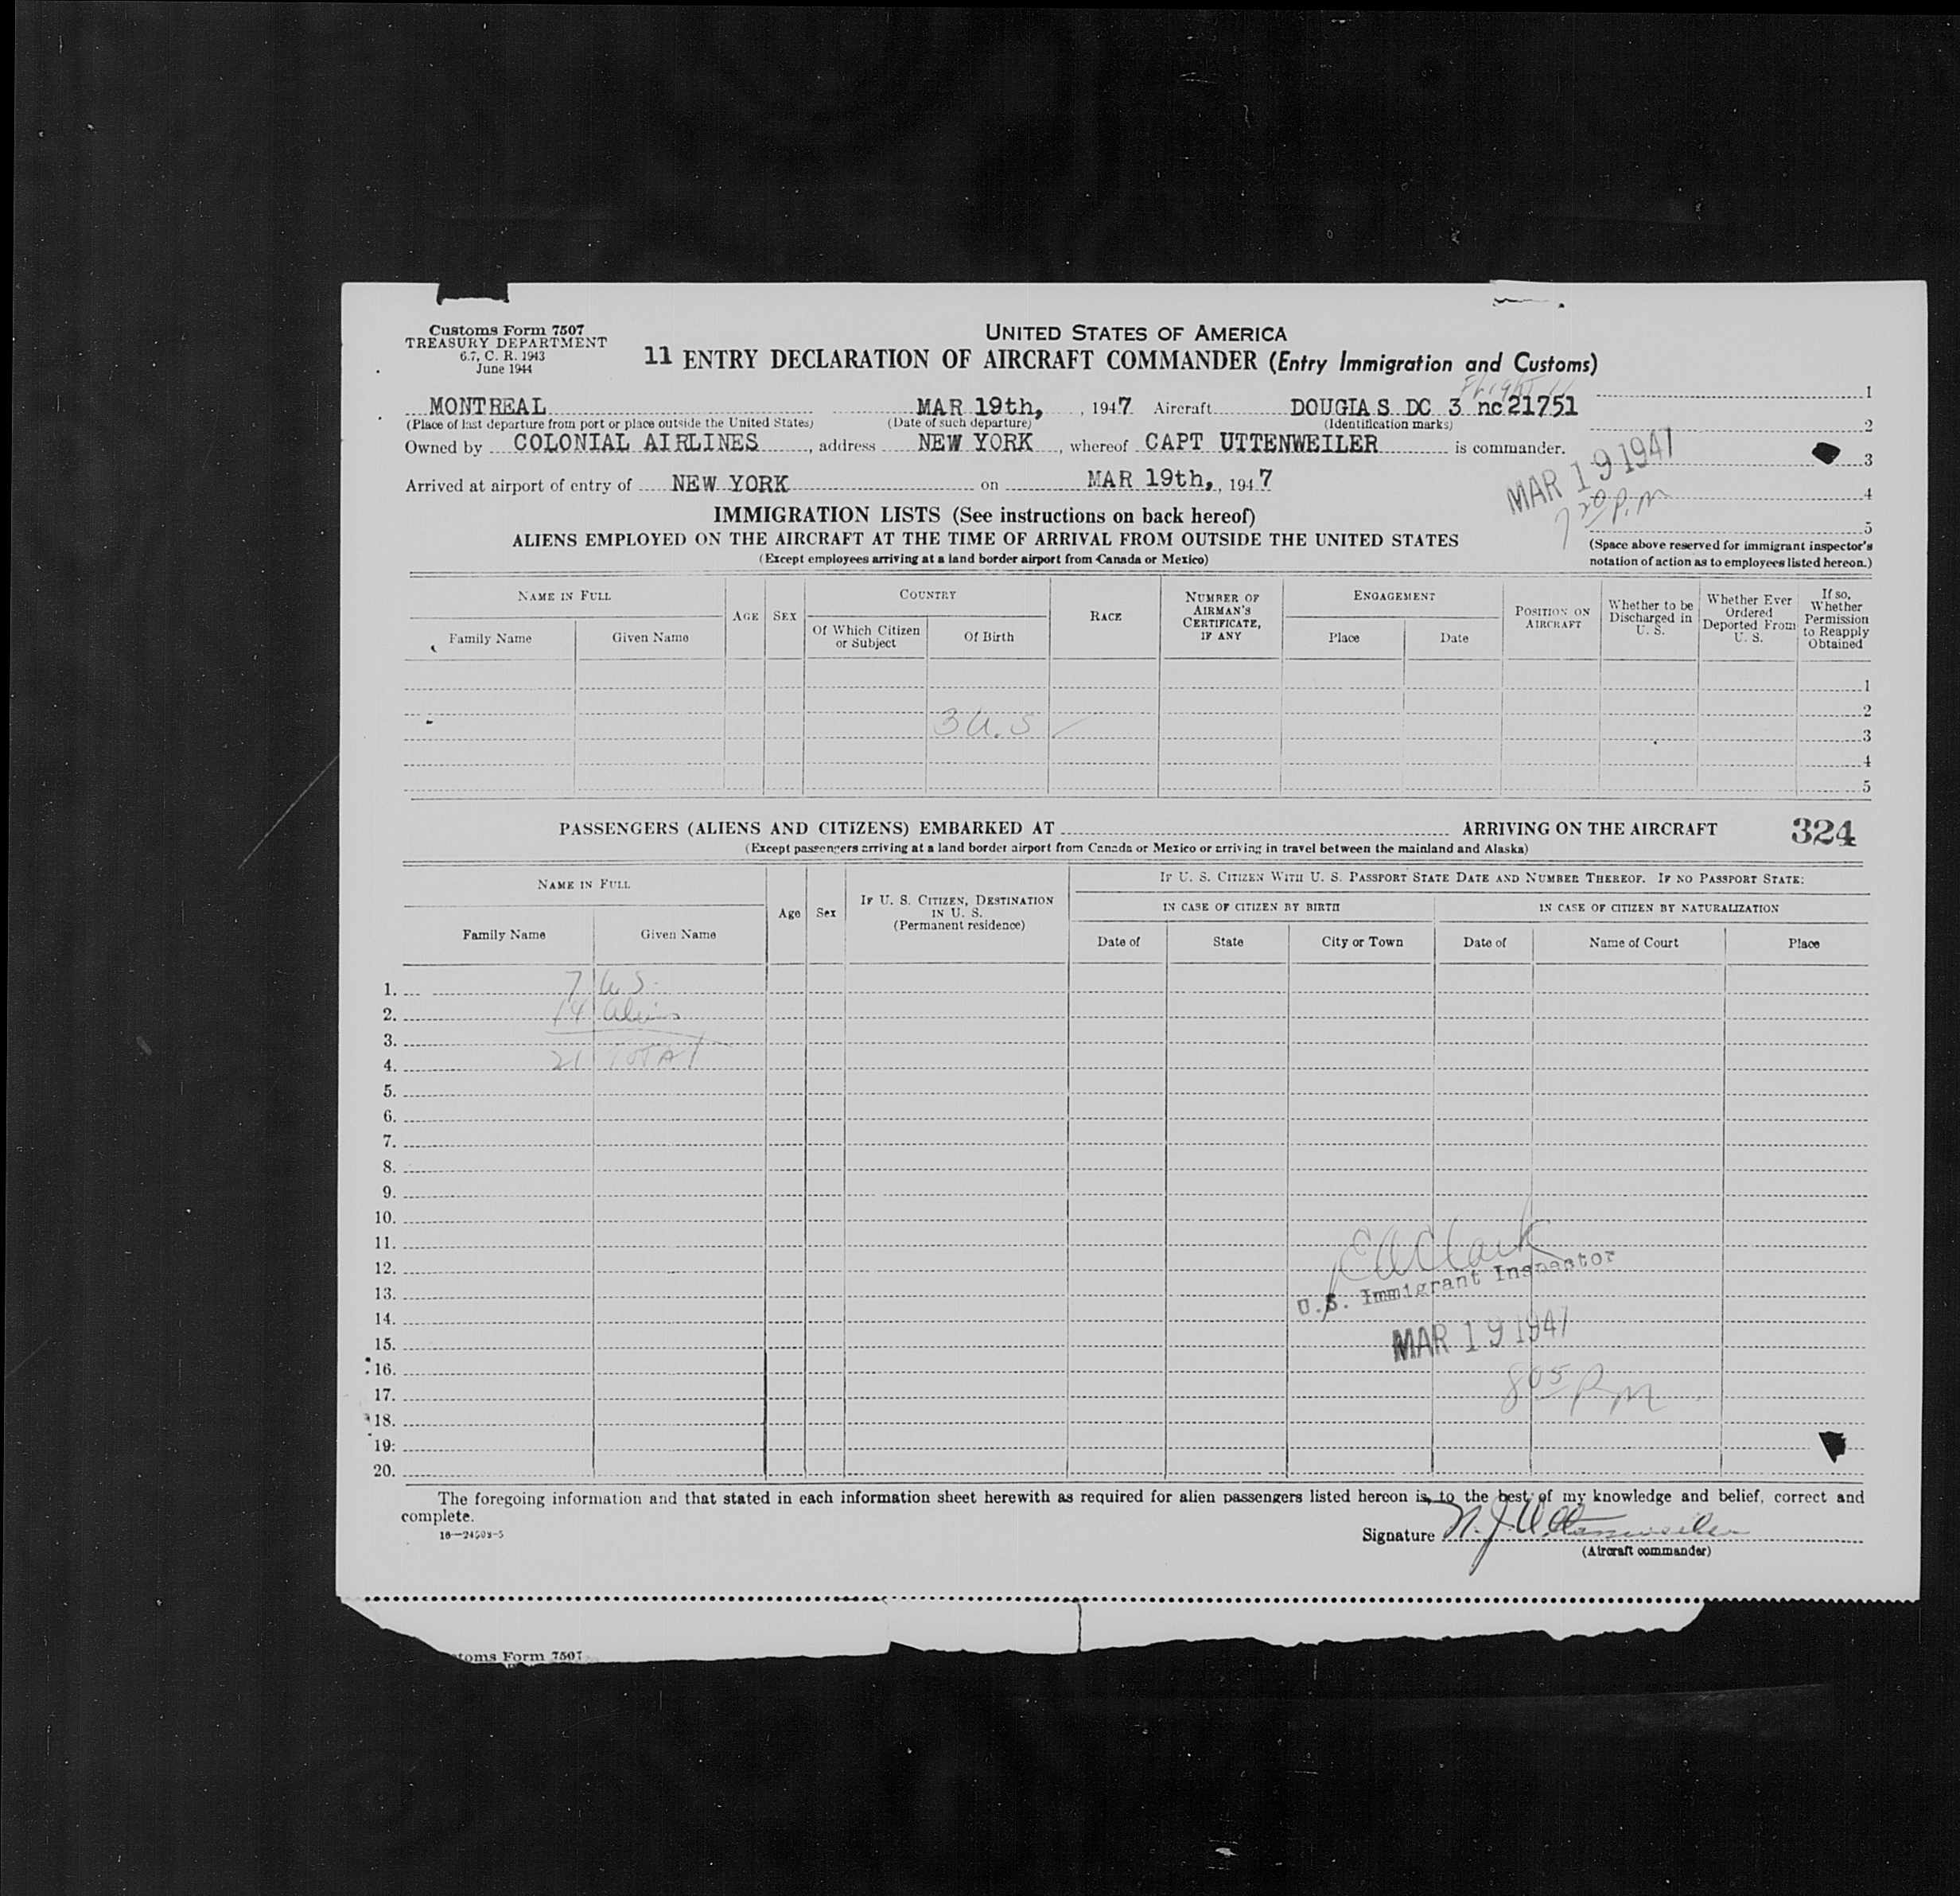 Customs Form 7507
TREASURY DEPARTMENT
6.7, C. R. 1943
June 1944
UNITED STATES OF AMERICA
11 ENTRY DECLARATION OF AIRCRAFT COMMANDER (Entry Immigration and Customs)
Flight 11
MONTREAL MAR 19th, , 1947 Aircraft DOUGLAS DC 3 nc 21751
(Place of last departure from port or place outside the United States) (Date of such departure) (Identification marks)
Owned by COLONIAL AIRLINES , address NEW YORK , whereof CAPT UTTENWEILER is commander.
Arrived at airport of entry of NEW YORK on MAR 19th, , 1947
1
2
3
4
5
MAR 19 1947
7 20 P.m
(Space above reserved for immigrant inspector's
notation of action as to employees listed hereon.)
IMMIGRATION LISTS (See instructions on back hereof)
ALIENS EMPLOYED ON THE AIRCRAFT AT THE TIME OF ARRIVAL FROM OUTSIDE THE UNITED STATES
(Except employees arriving at a land border airport from Canada or Mexico)
NAME IN FULL
Family Name Given Name
AGE
SEX
COUNTRY
Of Which Citizen or Subject
Of Birth
RACE
NUMBER OF AIRMAN'S CERTIFICATE, IF ANY
ENGAGEMENT
Place Date
POSITION ON AIRCRAFT
Whether to be Discharged in U. S.
Whether Ever Ordered Deported From U. S.
If so, Whether Permission to Reapply Obtained
1
2
3 U.S
3
4
5
PASSENGERS (ALIENS AND CITIZENS) EMBARKED AT ARRIVING ON THE AIRCRAFT 324
(Except passengers arriving at a land border airport from Canada or Mexico or arriving in travel between the mainland and Alaska)
NAME IN FULL
Family Name Given Name
Age
Sex
IF U. S. CITIZEN, DESTINATION IN U. S.
(Permanent residence)
IF U. S. CITIZEN WITH U. S. PASSPORT STATE DATE AND NUMBER THEREOF. IF NO PASSPORT STATE:
IN CASE OF CITIZEN BY BIRTH IN CASE OF CITIZEN BY NATURALIZATION
Date of State City or Town Date of Name of Court Place
1. 7 U S.
2. 14 Aliens
3.
4. 21 TOTAL
5.
6.
7.
8.
9.
10.
11.
12.
13.
14.
15.
16.
17.
18.
19.
20.
E A Clark
U.S. Immigrant Inspector
MAR 19 1947
8 05 P m
The foregoing information and that stated in each information sheet herewith as required for alien passengers listed hereon is, to the best of my knowledge and belief, correct and
complete.
16—24508-5
Signature N. J. Uttenweiler
(Aircraft commander)
toms Form 7507